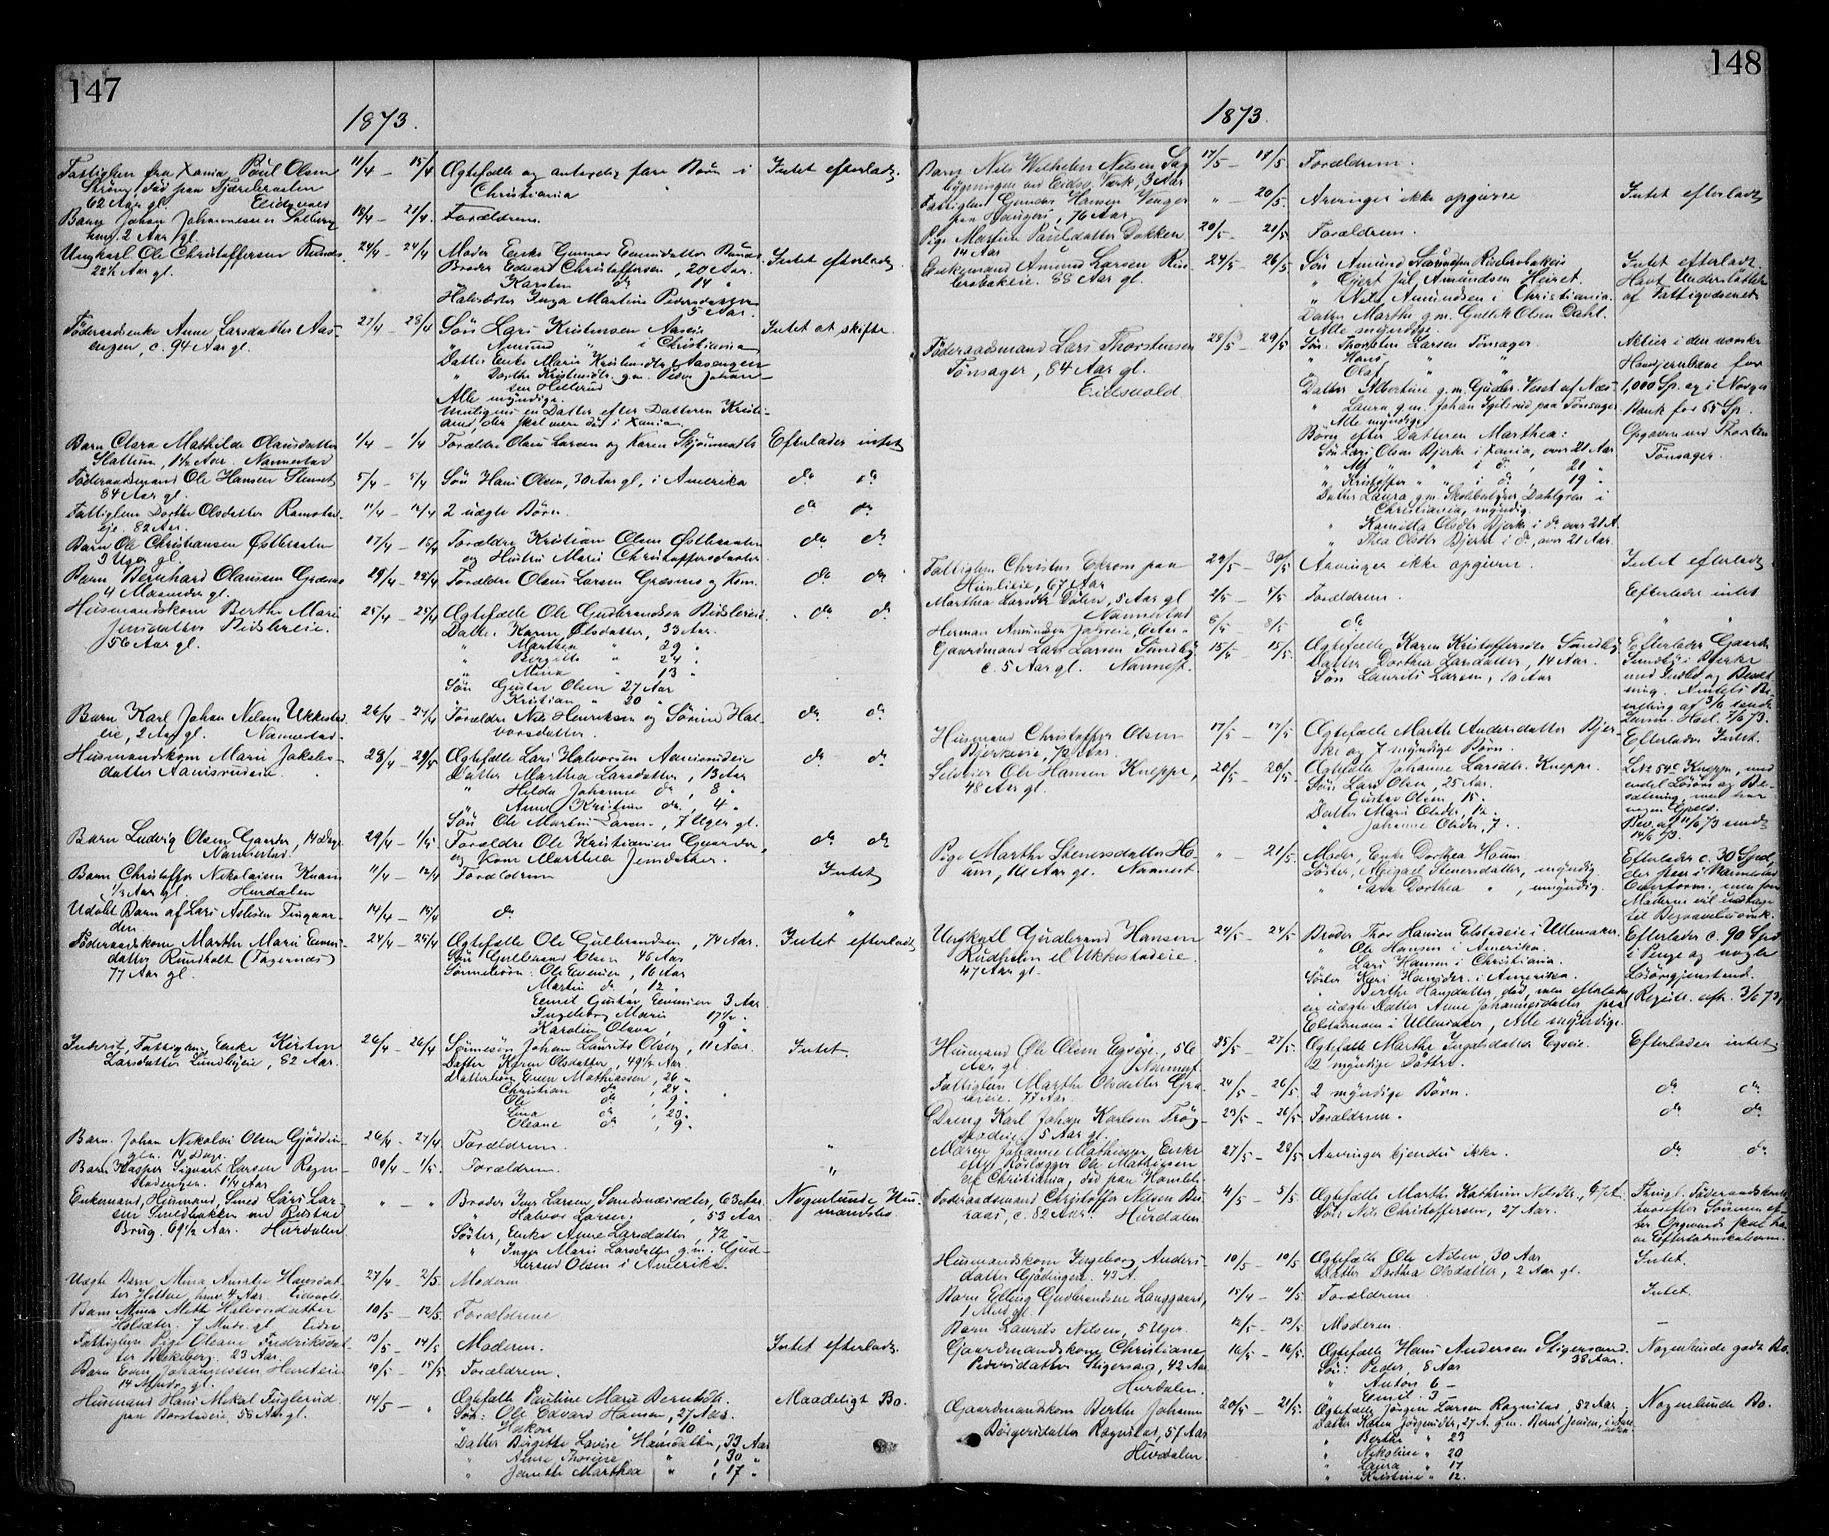 147
1873.
Fattiglem fra Xania Poul Olsen
Strøm, død paa Fjæreleraasten
62 Aar gl. Eidsvold
11/4 – 15/4
Ægtefælle og antagelig flere Børn i
Christiania
Intet efterladt.
Barn Johan Johannessen Solberg
hmv. 2 Aar gl.
18/4 – 21/4
Forældrene.
Ungkarl Ole Christoffersen Runds
22½ Aar gl.
24/4 – 24/4
Moder Enke Gunnor Evensdatter Runds
Broder Edvard Christoffersen, 20 Aar.
Karsten do 14 "
Halvsøster Inga Martine Pedersdatter
5 Aar.
Intet efterladt.
Føderaadsenke Anne Larsdatter Aas-
engen, c. 94 Aar gl.
27/4 – 28/4
Søn Lars Kristensen Aaseie
" Amund " i Christiania
Datter Enke Marie Kristensdtr Aasengen
" Dorthe Kristensdtr. g.m. Peder Johan-
sen Hellerud
Alle myndige.
Muligens en Datter efter Datteren Kristi-
ane, der skal være død i Xania.
Intet at skifte.
Barn Clara Mathilde Olausdatter
Slattum, 1½ Aar. Nannestad
1/4 – 1/4
Forældre Olaus Larsen og Karen Skjønnsdtr
Efterlader intet
Føderaadsmand Ole Hansen Stenset
84 Aar gl.
5/4 – 5/4
Søn Hans Olsen, 30 Aar gl, i Amerika
do do
Fattiglem Dorthe Olsdatter Ramstad-
eje. 82 Aar.
11/4 – 12/4
2 uægte Børn.
do do
Barn Ole Christiansen Østbraaten
3 Uger gl.
17/4 – 18/4
Forældre Kristian Olsen Østbraaten
og Hustru Mari Christoffersdatter
do do
Barn Bernhard Olaussen Græsnes
4 Maaneder gl.
29/4 – 29/4
Forældre Olaus Larsen Græsnes og Kone
do do
Husmandskone Berthe Marie
Jensdatter Bidslereie.
56 Aar gl.
25/4 – 25/4
Ægtefælle Ole Gudbrandsen Bidslereie
Datter Karen Olsdatter, 33 Aar.
" Marthea " 29 "
" Bergitte " 24 "
" Mina " 13 "
Søn Gustav Olsen 27 Aar
" Kristian " 20 "
do do
Barn Karl Johan Nelsen Ukkestad-
eie, 2 Aar gl. Nannestad.
26/4 – 27/4
Forældre Nils Henriksen og Sørine Hal-
vorsdatter.
do do
Husmandskone Mari Jakobs-
datter Aamisrudeie.
29/4 – 29/5
Ægtefælle Lars Halvorsen Aamisrudeie
Datter Marthea Larsdatter, 13 Aar
" Hilda Johanne do, 8 "
" Anne Kristine do, 4 "
Søn Ole Martin Larsen, 7 Uger gl.
do do
Barn Ludvig Olsen Gaarder, 14 Dage
Nannestad
29/4 – 1/5
Forældre Ole Kristiansen Gaarder,
og Kone Marthea Jensdatter.
do do
Barn Christoffer Nikolaisen Knain
1/2 Aar gl. Hurdalen
11/4 – 12/4
Forældrene
Intet
Udøbt Barn af Lars Aslesen Tingaar-
den
14/4 – 15/4
do
"
Føderaadskone Marthe Marie Evens-
datter Rundholt (Fagernæs)
77 Aar gl.
24/4 – 25/4
Ægtefælle Ole Gulbrandsen, 74 Aar.
Søn Gulbrand Olsen 45 Aar
Sønnebørn: Ole Evensen, 16 Aar
Martin do, 12 "
Emil Gustav Evensen 3 Aar.
Ingeborg Marie 17½ "
Karoline Olava, 9 "
Intet efterladt
Inderst, Fattiglem, Enke Kirsten
Larsdatter Sundbyeie, 82 Aar.
26/4 – 26/4
Sønnesøn Johan Laurits Olsen, 11 Aar.
Datter Karen Olsdatter, 49½ Aar.
Datterbørn Even Mathiassen, 26 "
Christian do, 24 "
Ole do, 9 "
Lina do, 23 "
Oleane do, 9 "
Intet.
Barn Johan Nikolai Olsen Gjødin-
gen. 14 Dage.
26/4 – 27/4
Forældrene.
"
Barn Kasper Sigvart Larsen Rogn-
stadenger. 1¼ Aar
30/4 – 1/5
Forældrene.
"
Enkemand, Husmand, Smed Lars Lar-
sen Smedbakken ved Rustad
Brug. 69½ Aar. Hurdalen
" – "
Broder Jens Larsen, Sandsnæssæter, 63 Aar.
Halvor Larsen, 53 Aar
Søster, Enke Anne Larsdatter, 72
" Inger Marie Larsdatter g.m. Gud-
brand Olsen i Amerika.
Nogenlunde Hus-
mandsbo
Uægte Barn Mina Amalie Hansdat-
ter Holter, hmv. 4 Aar. Eidsvold.
27/4 – 2/5
Moderen
Barn Mina Mathe Halvorsdatter
Holsæter. 7 Mndr. gl Eidsv.
10/5 – 12/5
Forældrene
Fattiglem Pige Oleane Fredriksdat-
ter Bekkeberg. 23 Aar.
13/5 – 14/5
Moderen.
Intet efterladt
Barn Even Johannessen Hersteie
14 Mndr. gl.
10/5 – 15/5
Forældrene.
Husmand Hans Mikal Fuglerud
paa Borstadeie, 58 Aar gl.
14/5 – "
Ægtefælle Pauline Marie Berntsdtr.
Søn: Ole Edvard Hansen, 27 Aar.
" Hakon ", 10
Datter Birgitte Lovise Hansdatter, 33 Aar
" Anne Thorine " , 30 "
" Jenette Marthea " , 17 "
Maadeligt Bo.
148
1873.
Barn Nils Wilhelm Nelsen Sag-
bygningen ved Eidsv. Værk, 3 Aar
17/5 – 17/5
Forældrene.
Fattiglem Gunder Hansen Venger
paa Haugeri, 76 Aar.
" – 20/5
Arvinger ikke opgivne
Intet efterladt
Pige Martine Paulsdatter Dokken
14 Aar
20/5 – 21/5
Forældrene.
Enkemand Amund Larsen Ris-
lerobakeie. 88 Aar gl.
24/5 – 26/5
Søn Amund Amundsen Rislerobakeie
" Gjert Jul. Amundsen Heiret.
" Nils Amundsen i Christiania.
Datter Marthe g.m. Gullik Olsen Dahl.
Alle myndige.
Intet efterladt
Havt Understøttelse
af Fattigvæsenet
Føderaadsmand Lars Thorstensen
Tønsager, 84 Aar gl.
Eidsvold.
28/5 – 29/5
Søn: Thorsten Larsen Tønsager.
" Hans " "
" Olaf " "
Datter Albertine g.m. Gudbr. Veset af Næs
" Laura g.m. Johan Egilsrud paa Tønsager
Alle myndige
Børn efter Datteren Marthea:
Søn Lars Olsen Bjerke i Xania, over 21 Aar
" Alf " " i do, 21 "
" Kristoffer " " i do, 19 "
Datter Laura, g.m. Skolebestyrer Dahlgren i
Christiania, myndig.
" Kamilla Olsdtr Bjerk i do over 21 A.
" Thea Olsdtr Bjerke i do, over 21 Aar.
Aktier i den norske
Hovedjernbane for
1,000 Sp. og i Norges
Bank for 65 Sp.
Opgaven ved Thorsten
Tønsager.
Fattiglem Christen Ekrom paa
Himlieie, 67 Aar
29/5 – 30/5
Arvinger ikke opgivne.
Intet efterladt
Marthea Larsdtr Dølen, 5 Aar gl
Nannestad
2/5 – 4/5
Forældrene.
Efterlader intet
Herman Amundsen Jahreie, 6 Aar
6/5 – 8/5
do
" "
Gaardmand Lars Larsen Sundby
c. 5 Aar gl. Nannest.
15/5 – 15/5
Ægtefælle Karen Kristoffersdtr Sundby
Datter Dorthea Larsdatter, 14 Aar.
Søn Laurits Larsen, 10 Aar
Efterlader Gaarden
Sundby i Bjerke
med Indbo og Besæt-
ning. Amtets Be-
villing af 3/6
Husmand Christoffer Olsen
Bjerkeeie, 72 Aar.
17/5 – 17/5
Ægtefælle Marthe Andersdatter Bjer-
ke og 7 myndige Børn.
Efterlader Intet.
Leieier Ole Hansen Kneppe,
48 Aar gl.
20/5 – 20/5
Ægtefælle Johanne Larsdtr. Kneppe.
Søn Lars Olsen, 25 Aar.
" Gustav Olsen, 15 "
Datter Mari Olsdtr, 12 "
" Johanne Olsdtr, 7 "
L No 54c Kneppe, med
endel Løsøre og Be-
sætning, men har
nogen Gjæld.
Bev. af 11/6 73
14/6 73.
Pige Marthe Stenersdatter Ho-
um, 16 Aar gl. Nannest.
" – 21/5
Moder, Enke Dorthea Houm.
Søster, Abigael Stenersdatter, myndig.
" Sara Dorthea " , umyndig.
Efterlader c. 30 Spd,
der staar i Nannestad
Overform., men som
Moderen vil indtage
til Begravelsesomk.
Ungkarl Gudbrand Hansen
Rudholen el Ukkestadeie.
47 Aar gl.
24/5 – 24/5
Broder Thor Hansen Elstadeie i Ullensaker.
" Ole Hansen i Amerika.
" Lars Hansen i Christiania.
Søster Kari Hansdtr. i Amerika.
" Berthe Hansdatter, død, men efterlader
en uægte Datter Anne Johannesdatter paa
Elstadmoen i Ullensaker, Alle myndige.
Efterlader c. 90 Spd
i Penge og nogle
Løsøregjenstande.
(Registr. eft. 3/6 73)
Husmand Ole Olsen Egseie, 56
Aar gl. Nannest
25/5 – 27/5
Ægtefælle Marthe Ingvalsdatter Egseie.
2 myndige Døttre.
Efterlader intet
Fattiglem Marthe Olsdatter Gra-
eieie. 77 Aar.
24/5 – 26/5
2 myndige Børn.
do do
Dreng Karl Johan Karlsen Trøg-
stadeie. 5 Aar gl.
23/5 – 26/5
Forældrene.
do do
Maren Johanne Mathisdtr, Enke
efter Rørlægger Ole Mathissen
af Christiania, død paa Homlei-
27/5 – 28/5
Arvinger kjendes ikke.
do do
Føderaadsmand Christoffer Nilsen Bu-
raas, c. 82 Aar. Hurdalen.
4/5 – 5/5
Ægtefælle Marthe Kathrine Nilsdtr, 67 A.
Søn Nils Christoffersen, 27 Aar.
Husmandskone Ingeborg Anders-
datter Gjødingen. 43 A.
10/5 – 10/5
Ægtefælle Ole Nilsen, 30 Aar
Datter Dorthea Olsdatter, 2 Aar gl.
Intet.
Barn Elling Gudbrandsen Langgaard,
1 Mnd gl.
15/4 – 11/5
Forældrene.
Intet.
Barn Laurits Nilsen, 5 Uger.
12/5 – 13/5
Moderen.
–
Gaardmandskone Christiane
Pedersdatter Stigersand, 42 Aar
Hurdalen.
16/5 – 16/5
Ægtefælle Hans Andersen Stigersand
38 Aar.
Søn: Peder, 8 Aar
" Anton 6 –
" Emil 3 –
Nogenlunde godt Bo.
Gaardmandskone Berthe Johanne
Børgersdatter Rognstad, 57 Aar
Hurdalen.
20/5 – 21/5
Ægtefælle Jørgen Larsen Rognstad, 52 Aar
Datter Karen Jørgensdtr, 27 A. g.m. Bernt Jensen,
" Berthe " 23
" Nikoline " 20
" Laura " 17
" Kristine " 12.
Nogenlunde Bo.